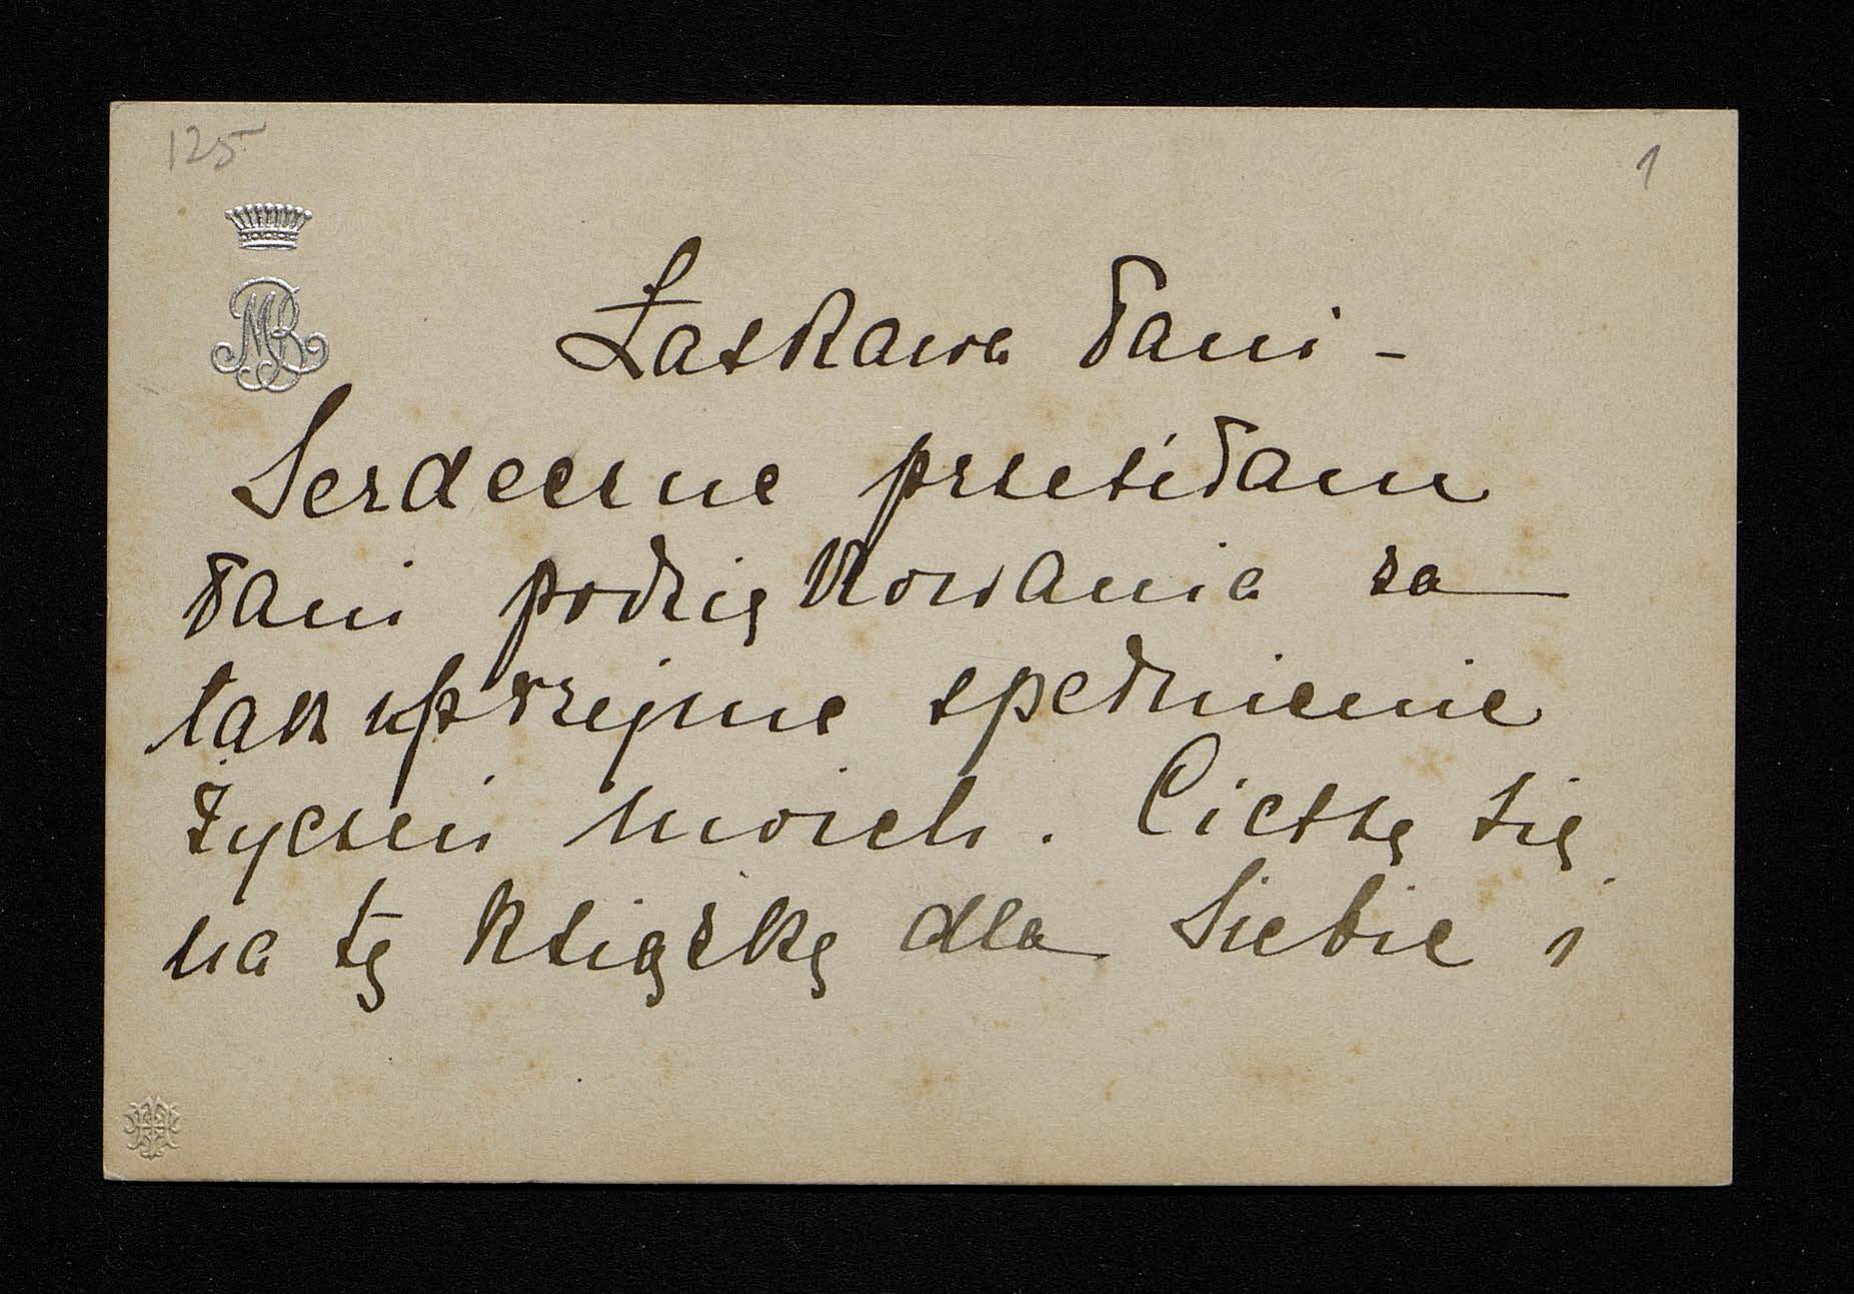 125
1
MR
Łaskawa Pani -
Serdeczne przesyłam
Pani podziękowania za
tak uprzejme spełnienie
życzeń moich. Cieszę się
na tę książkę dla siebie i